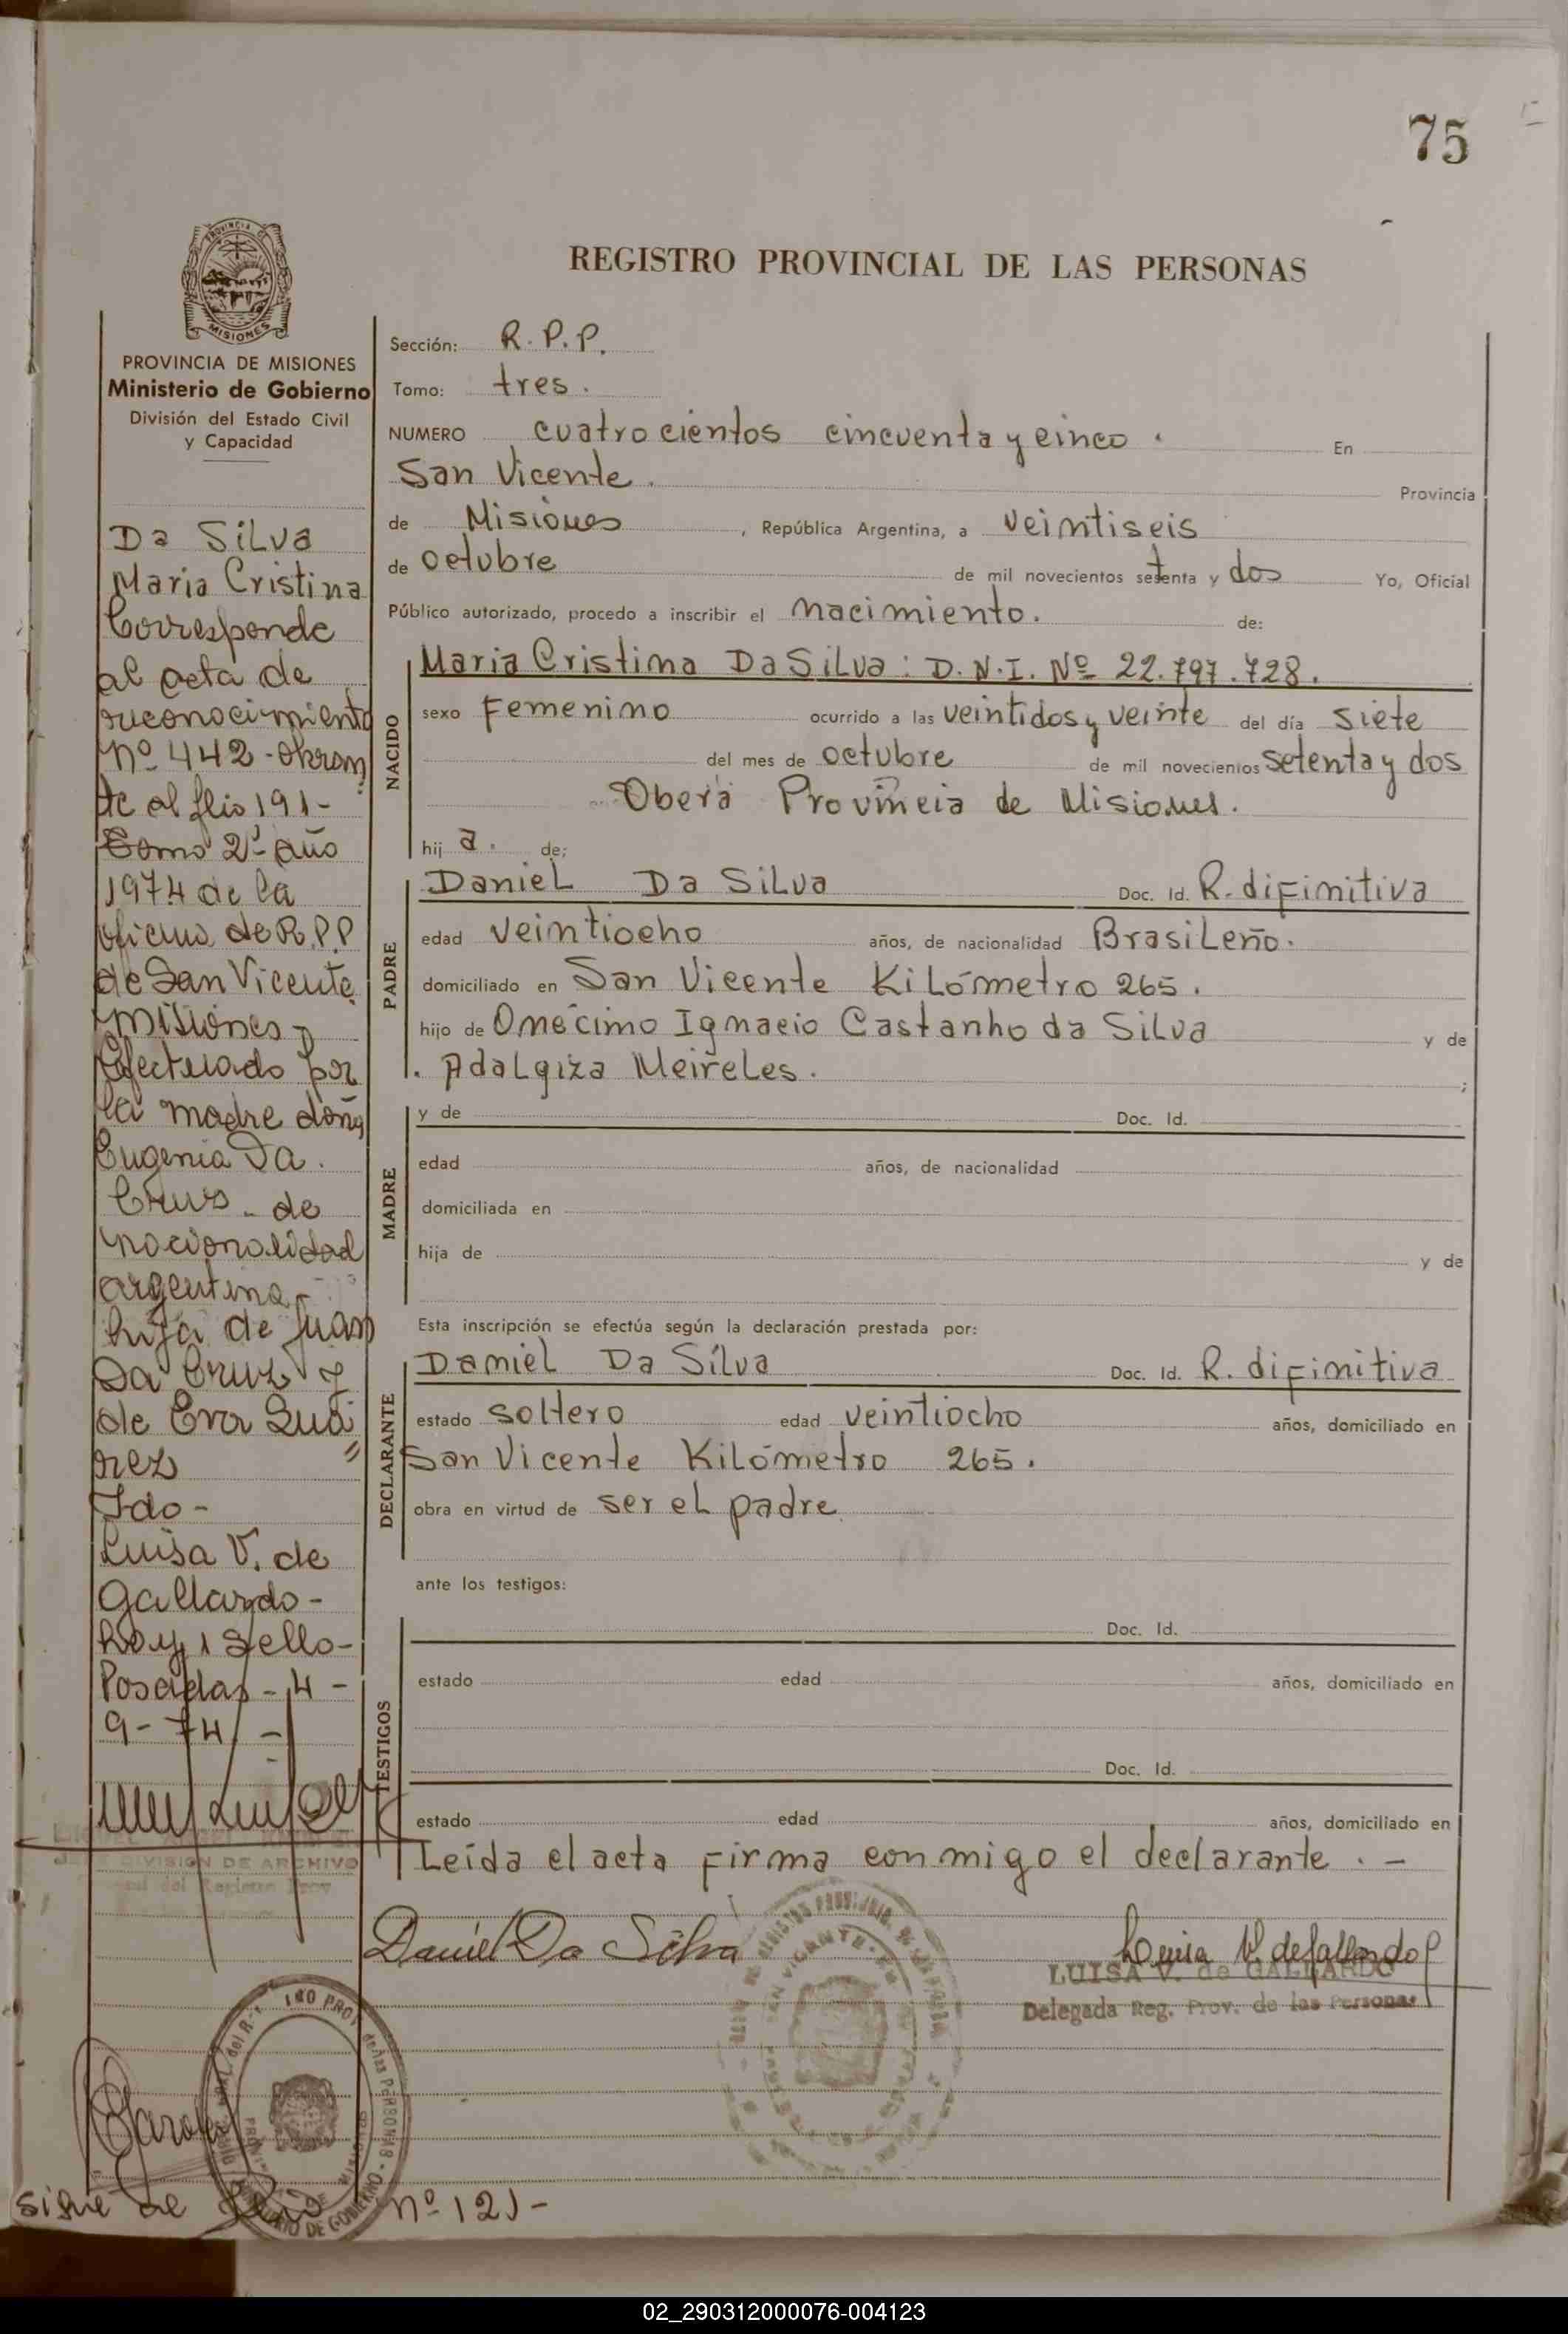 75
REGISTRO PROVINCIAL DE LAS PERSONAS
PROVINCIA DE MISIONES
Ministerio de Gobierno
División del Estado Civil
y Capacidad
Da Silva
Maria Cristina
Corresponde
al acta de
reconocimiento
nº 442 - obran
te al flio 191-
Tomo 2º año
1974 de la
oficina de R.P.P
de San Vicente
misiones -
Efectuado por
la madre doña
Eugenia Da
Cruz - de
nacionalidad
argentina -
hija de Juan
Da Cruz y
de Eva Suá
rez
Fdo -
Luisa V. de
Gallardo -
hay 1 sello -
Posadas - 4 -
9 - 74 -
DIVISION DE ARCHIVO
Sección: R. P. P.
Tomo: tres.
NUMERO cuatrocientos cincuenta y cinco. En
San Vicente. Provincia
de Misiones, República Argentina, a veintiseis
de octubre de mil novecientos setenta y dos Yo, Oficial
Público autorizado, procedo a inscribir el nacimiento. de:
NACIDO
Maria Cristina Da Silva: D.N.I. Nº 22.797.728.
sexo Femenino ocurrido a las veintidos y veinte del día siete
del mes de octubre de mil novecientos setenta y dos
Oberá Provincia de Misiones.
hij a. de;
PADRE
Daniel Da Silva Doc. Id. R. difinitiva
edad veintiocho años, de nacionalidad Brasileño.
domiciliado en San Vicente Kilómetro 265.
hijo de Onécimo Ignacio Castanho da Silva y de
. Adalgiza Meireles. ;
MADRE
y de Doc. Id.
edad años, de nacionalidad
domiciliada en
hija de y de
Esta inscripción se efectúa según la declaración prestada por:
DECLARANTE
Daniel Da Silva Doc. Id. R. difinitiva
estado soltero edad veintiocho años, domiciliado en
San Vicente Kilómetro 265.
obra en virtud de ser el padre
ante los testigos:
TESTIGOS
Doc. Id.
estado edad años, domiciliado en
Doc. Id.
estado edad años, domiciliado en
Leída el acta firma conmigo el declarante. -
Daniel Da Silva
Luisa V. de Gallardo
LUISA V. de GALLARDO
Delegada Reg. Prov. de las Personas
sigue al flio nº 121-
02_290312000076-004123